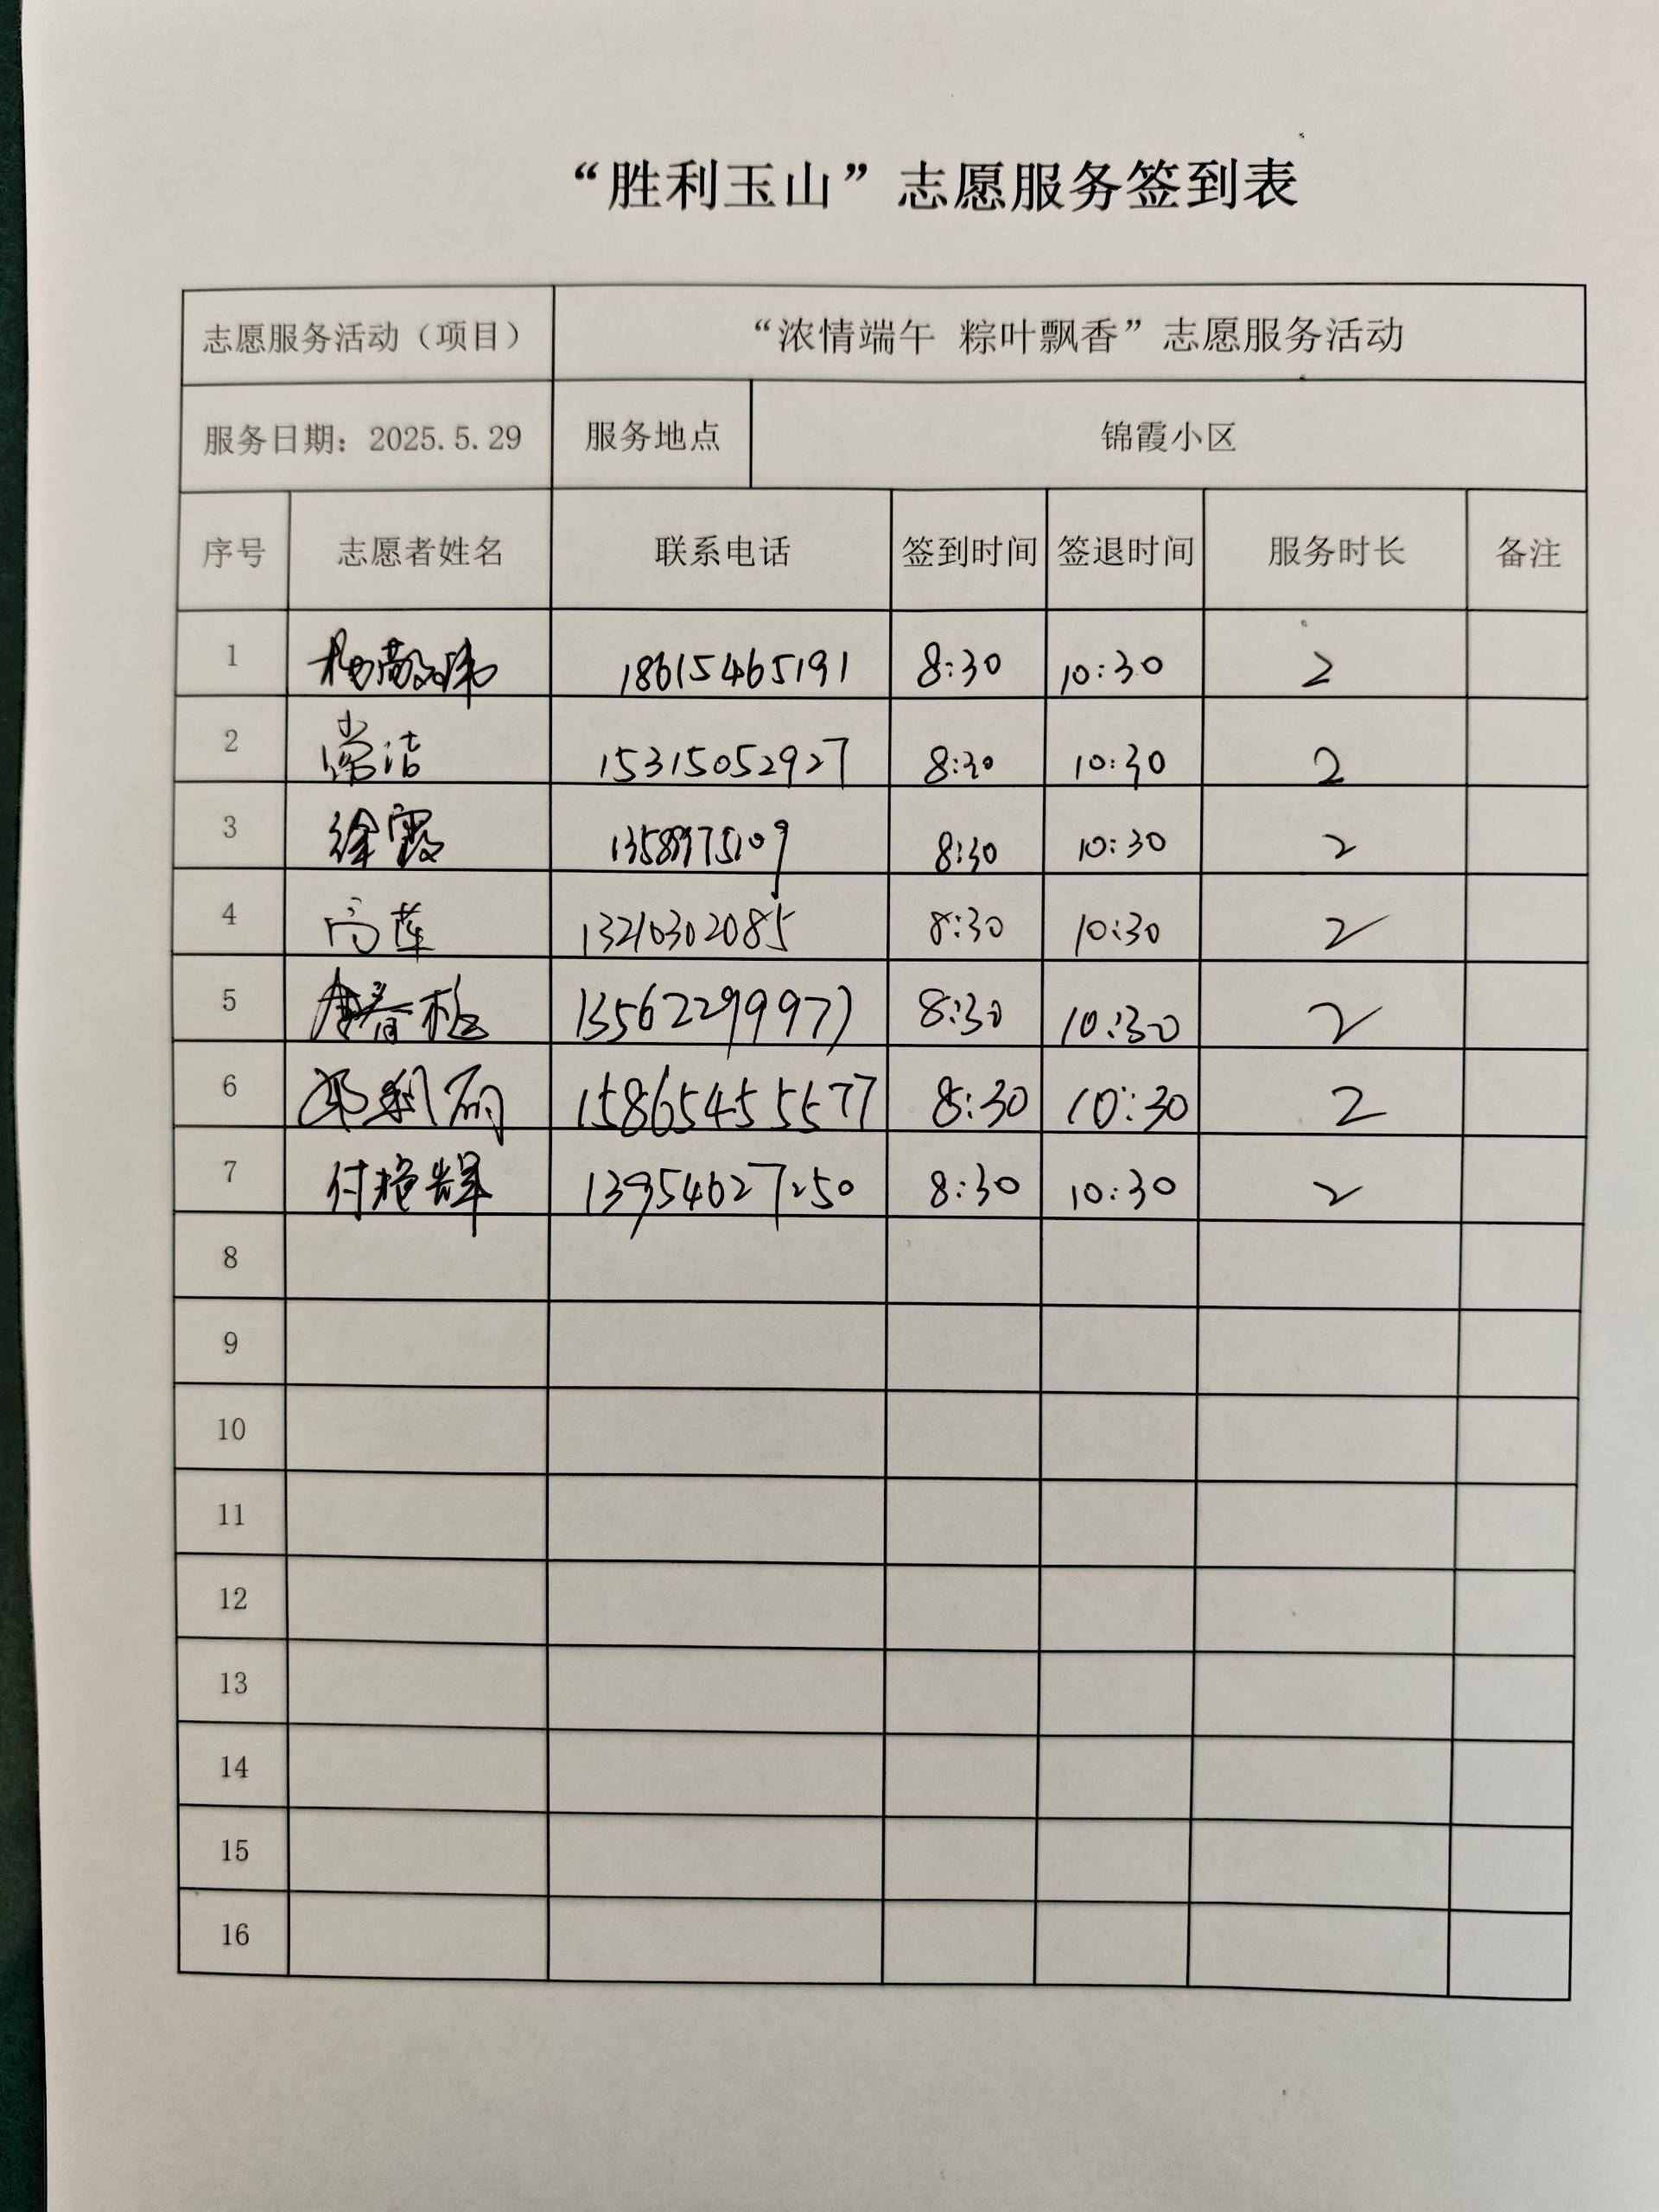 “胜利玉山”志愿服务签到表
志愿服务活动（项目） “浓情端午 粽叶飘香”志愿服务活动
服务日期：2025.5.29 服务地点 锦霞小区
序号 志愿者姓名 联系电话 签到时间 签退时间 服务时长 备注
1 18615465191 8:30 10:30 2
2 常洁 15315052927 8:30 10:30 2
3 徐霞 8:30 10:30 2
4 高莲 13210302085 8:30 10:30 2
5 13562299977 8:30 10:30 2
6 15865455577 8:30 10:30 2
7 付艳辉 13954627250 8:30 10:30 2
8
9
10
11
12
13
14
15
16